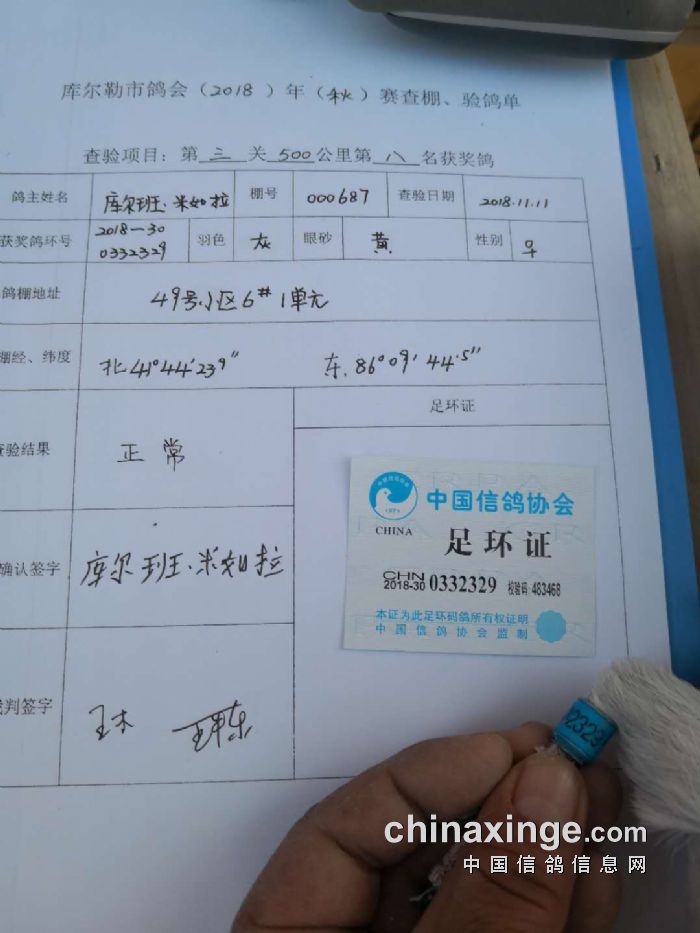 库尔勒市鸽会（2018）年（秋）赛查棚、验鸽单
查验项目：第三关500公里第八名获奖鸽
鸽主姓名 库尔班·米如拉 棚号 000687 查验日期 2018.11.11
获奖鸽环号 2018-30 0332329 羽色 灰 眼砂 黄 性别 早
鸽棚地址 49号小区6#1单元
棚经、纬度 北41°44′23.9″ 东.86°09′44.5″
查验结果 正常
足环证
确认签字 库尔班·米如拉
裁判签字 王木
中国信鸽协会
CHINA
足环证
CHN
2018-30 0332329 校验码:483468
本证为此足环码鸽所有权证明
中国信鸽协会监制
2329
chinaxinge.com
中国信鸽信息网